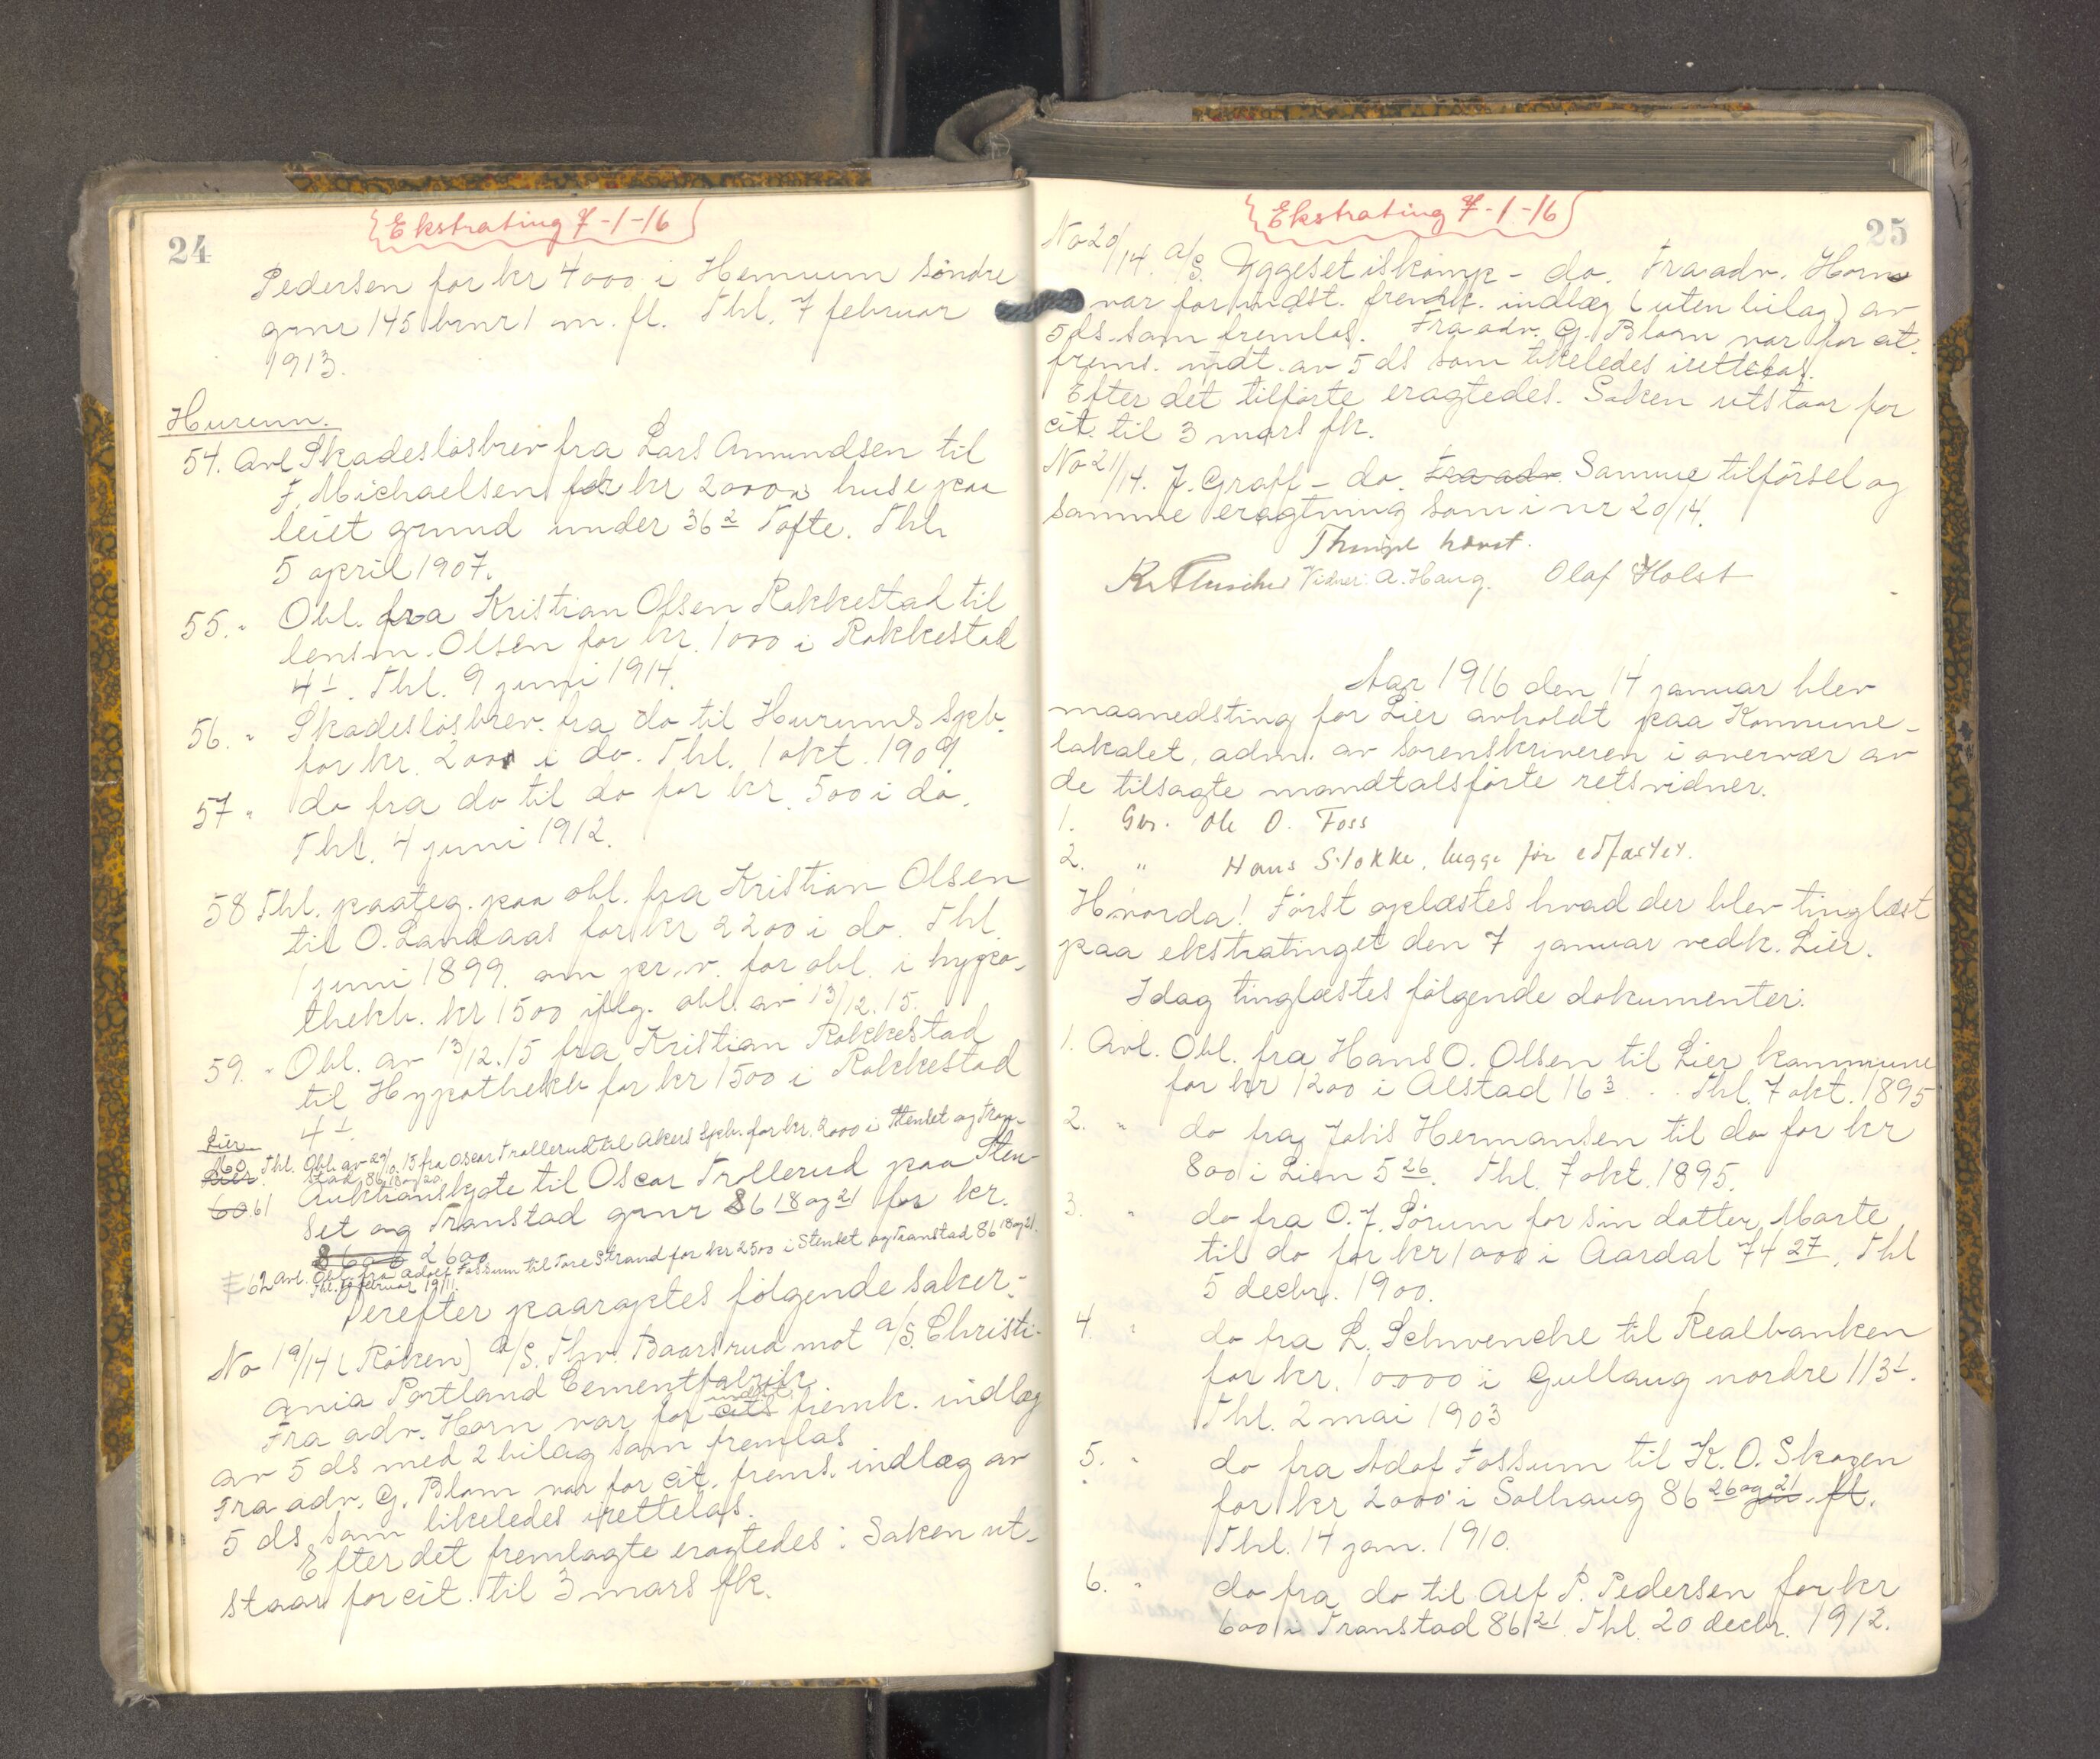 Ekstrating 7-1-16
24
Pedersen for kr 4000 i Hemum søndre
grnr 145 brnr 1 m. fl. Thl. 7 februar
1913.
Hurum.
54. Avl Skadesløsbrev fra Lars Amundsen til
J. Michaelsen for kr 2000 i huse paa
leiet grund under 36 2 Tofte. Thl.
5 april 1907.
55. " Obl. fra Kristian Olsen Rokkestad til
lensm. Olsen for kr. 1000 i Rokkestad
4 1. Thl. 9 juni 1914.
56. " Skadesløsbrev fra do til Hurums Spb.
for kr. 2000 i do. Thl. 1 okt. 1909.
57 " do fra do til do for kr. 500 i do.
Thl. 4 juni 1912.
58 Thl. paateg. paa obl. fra Kristian Olsen
til O. Landaas for kr 2200 i do. Thl.
1 juni 1899. om pr.v. for obl. i hypo-
thekb. kr 1500 iflg. obl. av 13/12.15.
59. " Obl. av 13/12.15 fra Kristian Rokkestad
til Hypothekb for kr 1500 i Rokkestad
4 1.
Lier
60. Thl. Obl. av 29/10.15 fra Oscar Trollerud til Akers Spb. for kr. 2000 i Stenset og Tran-
stad 86 18 og 20.
Lier
60. 61 Auktionskjøte til Oscar Trollerud paa Sten-
set og Transtad grnr 86 18 og 21 for kr.
8600 2600
62 Avl. Obl. fra Adolf Fossum til Tore Strand for kr 2500 i Stenset og Transtad 86 18 og 21.
Thl. februar 1911.
Derefter paaroptes følgende saker:
No 19/14 (Røken) A/S. Thv. Baarsrud mot A/S. Christi-
ania Portland Cementfabrik
Fra adv. Horn var for cits indst. fremk. indlæg
av 5 ds med 2 bilag som fremlas
Fra adv. G. Blom var for cit. frems. indlæg av
5 ds som likeledes irettelas.
Efter det fremlagte eragtedes: Saken ut-
staar for cit. til 3 mars fk.
Ekstrating 7-1-16
25
No 20/14. A/S. Yggeset iskomp - do. Fra adv. Horn
var for indst. fremk. indlæg (uten bilag) av
5 ds. som fremlas. Fra adv. G. Blom var for cit.
frems. indt. av 5 ds som likeledes irettelas.
Efter det tilførte eragtedes. Saken utstaar for
cit. til 3 mars fk.
No 21/14. J. Graff - do. Fra adv. Samme tilførsel og
samme eragtning som i nr 20/14.
Thinget hævet.
Vidner: A. Haug. Olaf Holst
Aar 1916 den 14 januar blev
maanedsting for Lier avholdt paa Kommune-
lokalet, adm. av sorenskriveren i overvær av
de tilsagte mandtalsførte retsvidner.
1. Gbr. Ole O. Foss
2. " Hans Stokke, begge før edfæstet.
Hvorda! Først oplæstes hvad der blev tinglæst
paa ekstratinget den 7 januar vedk. Lier.
Idag tinglæstes følgende dokumenter:
1. Avl. Obl. fra Hans O. Olsen til Lier kommune
for kr 1200 i Alstad 16 3. Thl. 7 okt. 1895
2. " do fra Johs Hermansen til do for kr
800 i Lien 5 26. Thl. 7 okt. 1895.
3. " do fra O. J. Sørum for sin datter Marte
til do for kr 1000 i Aardal 74 27. Thl
5 decbr. 1900.
4. " do fra L. Schwencke til Realbanken
for kr. 10000 i Gullaug nordre 113 1.
Thl. 2 mai 1903
5. " do fra Adof Fossum til K. O. Skogen
for kr 2000 i Solhaug 86 26 og 21 m. fl.
Thl. 14 jan. 1910.
6. " do fra do til Alf P. Pedersen for kr
600 i Transtad 86 21. Thl. 20 decbr. 1912.